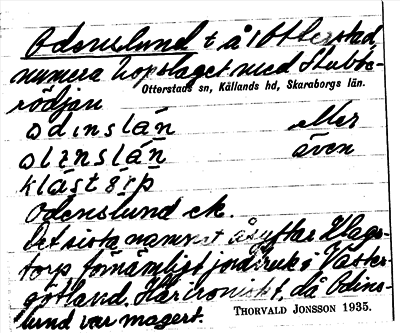 Odenslund t å i Otterstad,
numera hopslaget med Stubbe-
rödjan
Otterstads sn, Kållands hd, Skaraborgs län.
odınslán eller
olınslán även
klástórp
Odenslund ck.
Det sista namnet åsyftar Klags-
torp förnämligt jordbruk i Väster-
götland. Här ironiskt, då Odins-
lund var magert.
THORVALD JONSSON 1935.